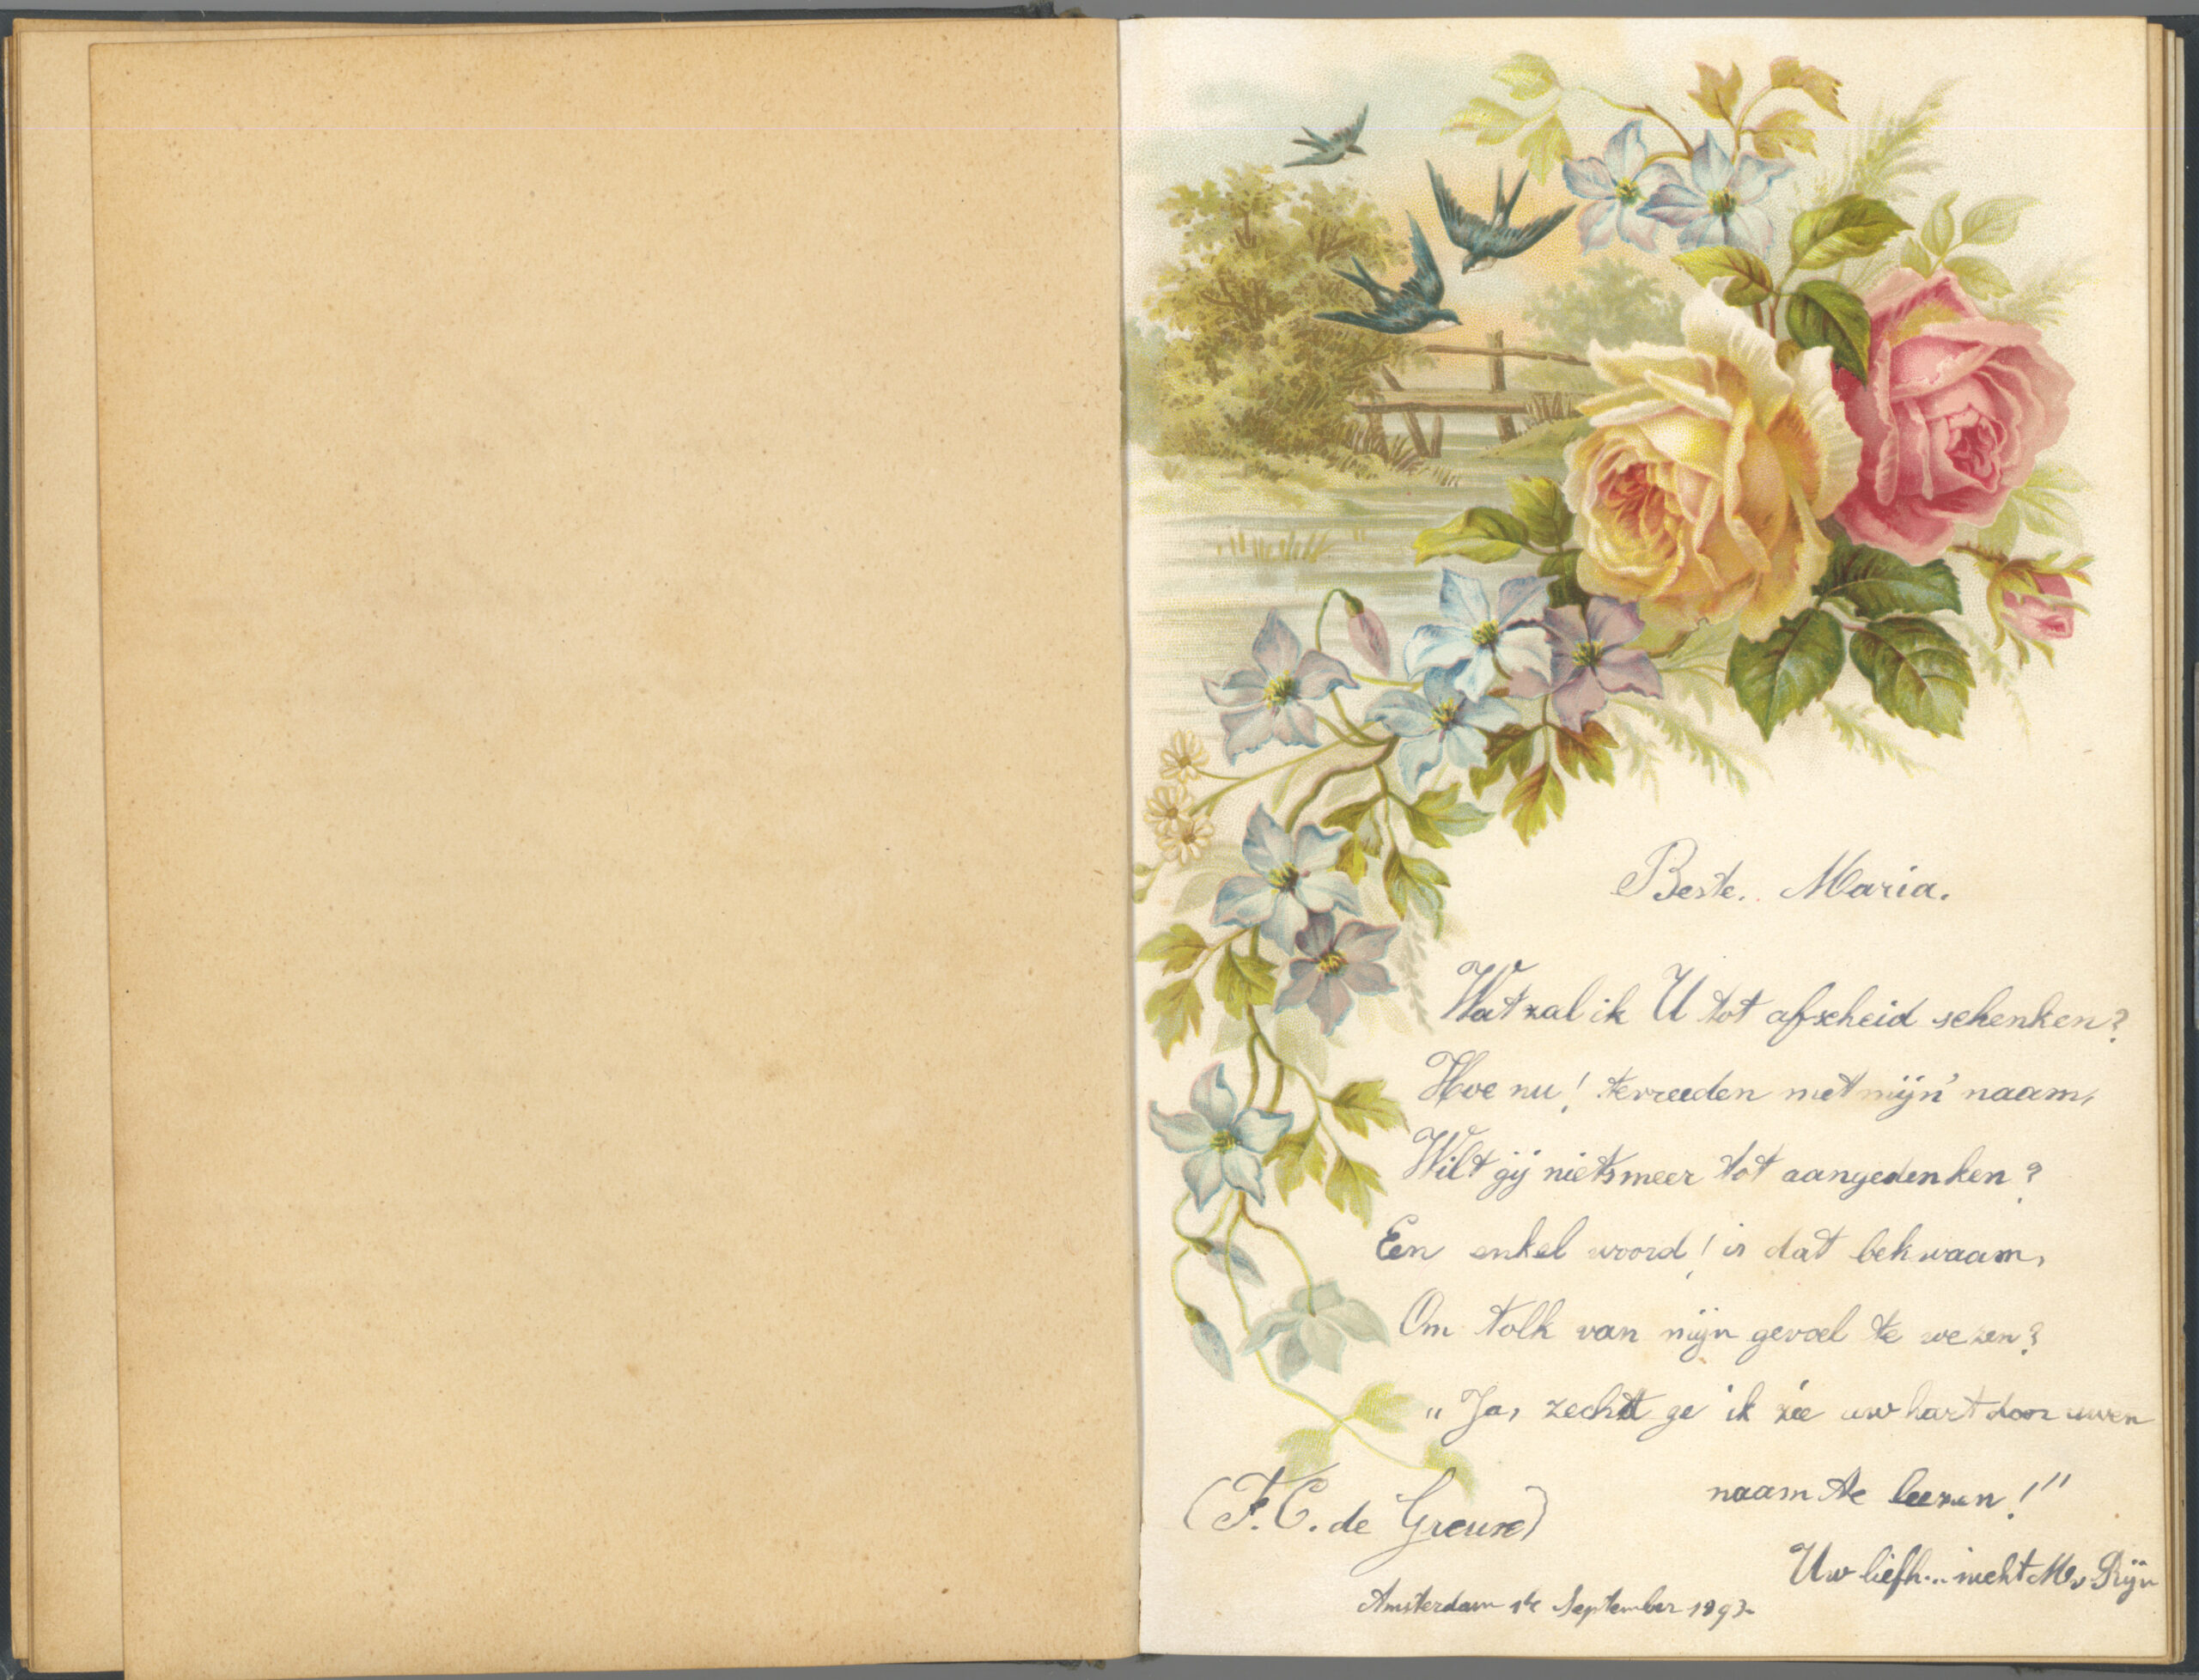 Beste. Maria.
Wat zal ik U tot afscheid schenken?
Hoe nu! tevreeden met mijn' naam,
Wilt gij niets meer tot aangedenken?
Een enkel woord! is dat bekwaam,
Om tolk van mijn gevoel te wezen?
"Ja, zecht ge ik zie uw hart door uwen
naam te leezen!"
(F. C. de Greuve)
Uw liefh... nicht M v Rijn
Amsterdam 1e September 1893